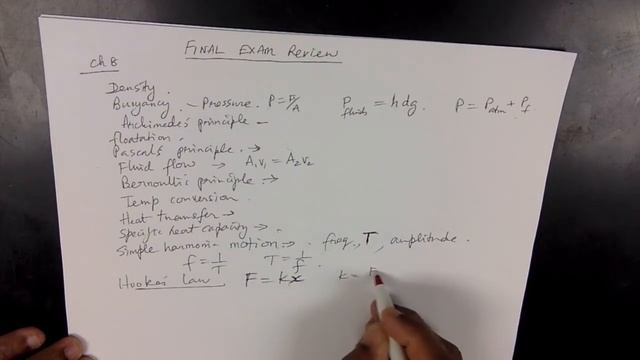 FINAL EXAM Review
Ch 8
Density.
Buoyancy. - Pressure. P = F/A P fluids = hdg. P = Patm + Pf
Archimede's principle -
floatation.
Pascal's principle. →
Fluid flow → A₁v₁ = A₂v₂
Bernoulli's principle. →
Temp conversion.
Heat transfer →
Specific heat capacity → .
Simple harmonic motion → . freq., T, amplitude.
f = 1/T T = 1/f .
Hooke's law F = kx k = F